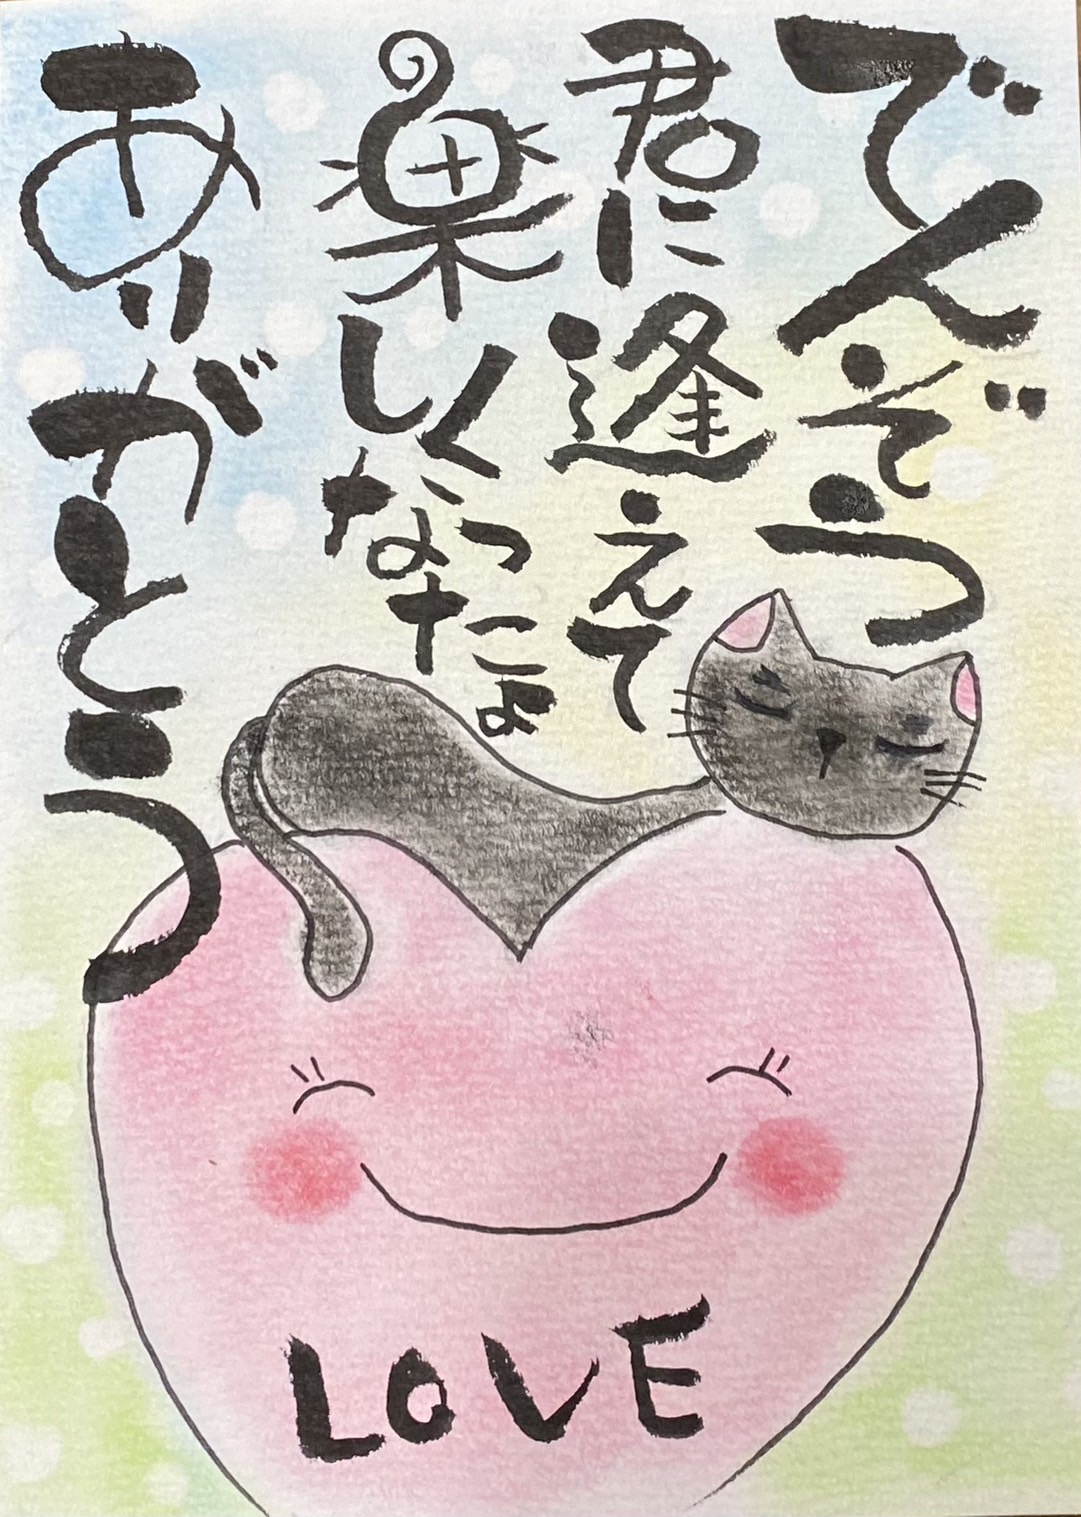 でんぞう
君に逢えて
楽しくなったよ
ありがとう
LOVE